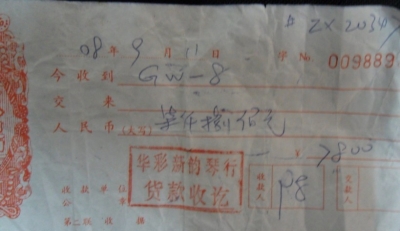 # ZX2034
08 年 9 月 11 日 字 № 009889
今 收 到 GW-8
交 来
人 民 币 (大写) 柒仟捌佰元
¥ 7800
华彩新韵琴行
货款收讫
收 款 单 位
公 章
收款人 P8 交款人
第二联 收 据